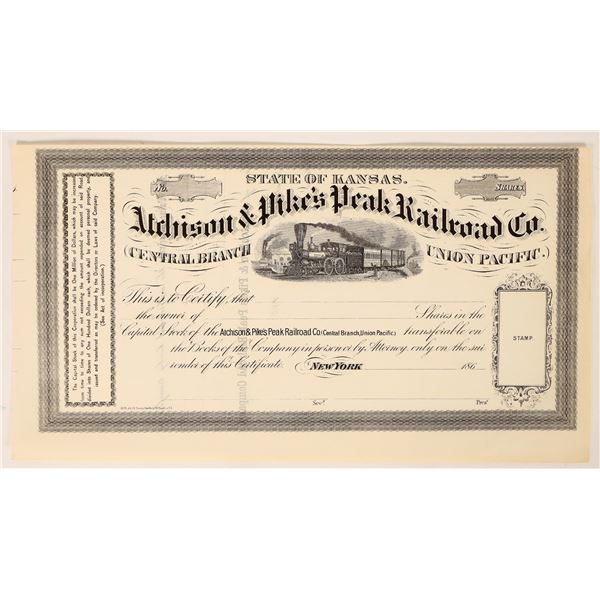 STATE OF KANSAS.
No.
SHARES.
Atchison & Pike's Peak Railroad Co.
(CENTRAL BRANCH
UNION PACIFIC.)
This is to Certify, that
the owner of Shares in the
Capital Stock of the Atchison & Pike's Peak Railroad Co (Central Branch, Union Pacific) transferable on
the Books of the Company in person or by Attorney only on the sur
render of this Certificate. NEW YORK 186
STAMP.
Secy. Prest.
The Capital Stock of this Corporation shall be One Million of Dollars, which may be increased
from time to time to any sum not exceeding the amount expended on account of said Road,
divided into Shares of One Hundred Dollars each, which shall be deemed personal property, and
issued and transferred as may be ordered by the Directors or Laws of said Company.
(See Act of incorporation.)